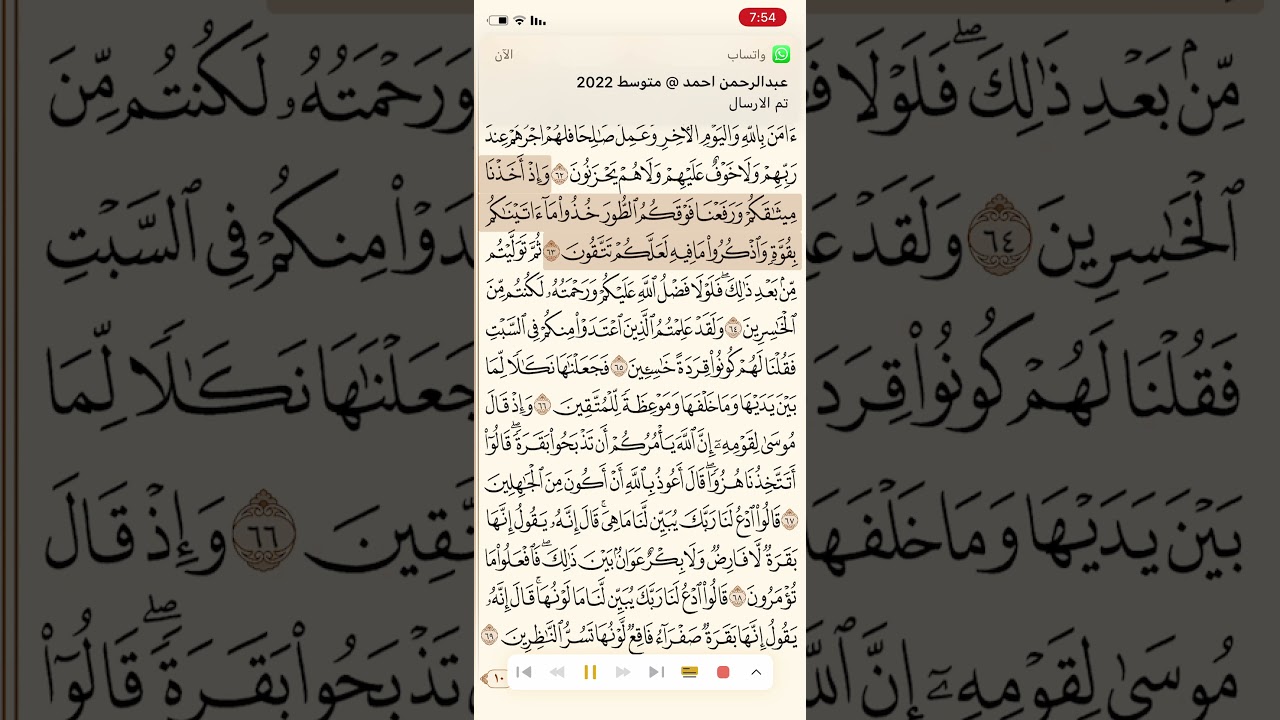 7:54
واتساب
الآن
عبدالرحمن احمد @ متوسط 2022
تم الارسال
ءَامَنَ بِٱللَّهِ وَٱلۡيَوۡمِ ٱلۡأٓخِرِ وَعَمِلَ صَٰلِحٗا فَلَهُمۡ أَجۡرُهُمۡ عِندَ
رَبِّهِمۡ وَلَا خَوۡفٌ عَلَيۡهِمۡ وَلَا هُمۡ يَحۡزَنُونَ ٦٢ وَإِذۡ أَخَذۡنَا
مِيثَٰقَكُمۡ وَرَفَعۡنَا فَوۡقَكُمُ ٱلطُّورَ خُذُواْ مَآ ءَاتَيۡنَٰكُم
بِقُوَّةٖ وَٱذۡكُرُواْ مَا فِيهِ لَعَلَّكُمۡ تَتَّقُونَ ٦٣ ثُمَّ تَوَلَّيۡتُم
مِّنۢ بَعۡدِ ذَٰلِكَۖ فَلَوۡلَا فَضۡلُ ٱللَّهِ عَلَيۡكُمۡ وَرَحۡمَتُهُۥ لَكُنتُم مِّنَ
ٱلۡخَٰسِرِينَ ٦٤ وَلَقَدۡ عَلِمۡتُمُ ٱلَّذِينَ ٱعۡتَدَوۡاْ مِنكُمۡ فِي ٱلسَّبۡتِ
فَقُلۡنَا لَهُمۡ كُونُواْ قِرَدَةً خَٰسِـِٔينَ ٦٥ فَجَعَلۡنَٰهَا نَكَٰلٗا لِّمَا
بَيۡنَ يَدَيۡهَا وَمَا خَلۡفَهَا وَمَوۡعِظَةٗ لِّلۡمُتَّقِينَ ٦٦ وَإِذۡ قَالَ
مُوسَىٰ لِقَوۡمِهِۦٓ إِنَّ ٱللَّهَ يَأۡمُرُكُمۡ أَن تَذۡبَحُواْ بَقَرَةٗۖ قَالُوٓاْ
أَتَتَّخِذُنَا هُزُوٗاۖ قَالَ أَعُوذُ بِٱللَّهِ أَنۡ أَكُونَ مِنَ ٱلۡجَٰهِلِينَ
٦٧ قَالُواْ ٱدۡعُ لَنَا رَبَّكَ يُبَيِّن لَّنَا مَا هِيَۚ قَالَ إِنَّهُۥ يَقُولُ إِنَّهَا
بَقَرَةٞ لَّا فَارِضٞ وَلَا بِكۡرٌ عَوَانُۢ بَيۡنَ ذَٰلِكَۖ فَٱفۡعَلُواْ مَا
تُؤۡمَرُونَ ٦٨ قَالُواْ ٱدۡعُ لَنَا رَبَّكَ يُبَيِّن لَّنَا مَا لَوۡنُهَاۚ قَالَ إِنَّهُۥ
يَقُولُ إِنَّهَا بَقَرَةٞ صَفۡرَآءُ فَاقِعٞ لَّوۡنُهَا تَسُرُّ ٱلنَّٰظِرِينَ ٦٩
١٠
وَرَحۡمَتُهُۥ لَكُنتُم مِّنَ
مِّنۢ بَعۡدِ ذَٰلِكَۖ فَلَوۡلَا
ٱلۡخَٰسِرِينَ ٦٤ وَلَقَدۡ
مِنكُمۡ فِي ٱلسَّبۡتِ
فَقُلۡنَا لَهُمۡ كُونُواْ
نَكَٰلٗا لِّمَا
بَيۡنَ يَدَيۡهَا وَمَا خَلۡفَهَا
٦٦ وَإِذۡ قَالَ
مُوسَىٰ لِقَوۡمِهِۦٓ إِنَّ
تَذۡبَحُواْ بَقَرَةٗۖ قَالُوٓاْ